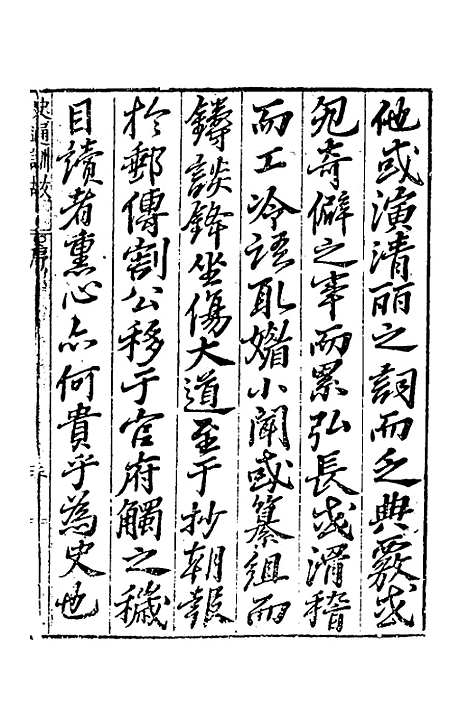 他或演清麗之詞而乏典覈或
宛奇僻之事而累弘長或滑稽
而工冷語取媚小聞或纂組而
鑄談鋒坐傷大道至于抄朝報
於郵傳割公移于官府觸之穢
目讀者熏心亦何貴乎為史也
史通訓故 序